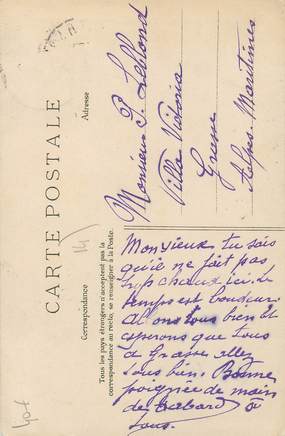 CARTE POSTALE
Correspondance
Adresse
Tous les pays étrangers n'acceptent pas la
correspondance au recto, se renseigner à la Poste.
Monsieur P. Leblond
Villa Victoria
Grasse
Alpes Maritimes
Monsieur tu sais
qu'ie ne fait pas
trop chaux ici. Le
temps est boudeur.
Al ons tous bien et
esperons que tous
à Grasse elles
tous bien. Bonne
poignée de main
de à
tous.